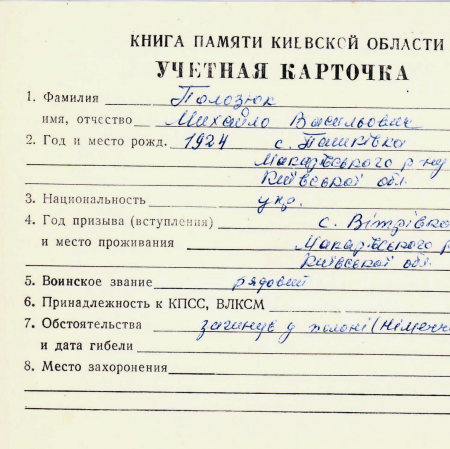 КНИГА ПАМЯТИ КИЕВСКОЙ ОБЛАСТИ
УЧЕТНАЯ КАРТОЧКА
1. Фамилия Полозюк
имя, отчество Михайло Васильович
2. Год и место рожд. 1924 с. Пашківка
Макарівського р-ну
Київської обл.
3. Национальность укр.
4. Год призыва (вступления) с. Вітрівка
и место проживания Макарівського р
Київської обл.
5. Воинское звание рядовий
6. Принадлежность к КПСС, ВЛКСМ
7. Обстоятельства загинув у полоні (Німечч
и дата гибели
8. Место захоронения